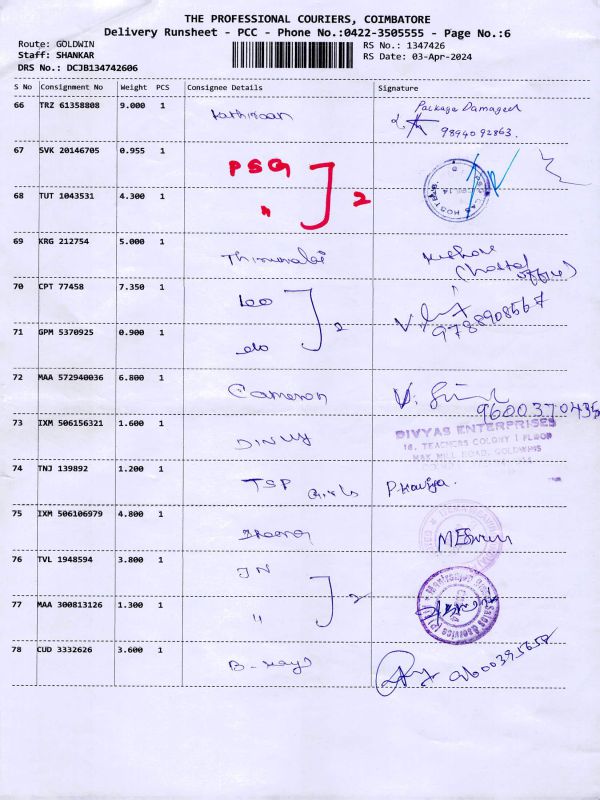 THE PROFESSIONAL COURIERS, COIMBATORE
Delivery Runsheet - PCC - Phone No.:0422-3505555 - Page No.:6
Route: GOLDWIN
Staff: SHANKAR
DRS No.: DCJB134742606
RS No.: 1347426
RS Date: 03-Apr-2024
S No Consignment No Weight PCS Consignee Details Signature
66 TRZ 61358808 9.000 1 Package Damaged
9894092863.
67 SVK 20146705 0.955 1 PSG
68 TUT 1043531 4.300 1 " 2
69 KRG 212754 5.000 1 Kishore
(hostel office)
70 CPT 77458 7.350 1 Leo 2
9788908567
71 GPM 5370925 0.900 1 do
72 MAA 572940036 6.800 1 Cameron
9600370435
73 IXM 506156321 1.600 1 DIVYAS ENTERPRISES
16, TEACHERS COLONY I FLOOR
MAY MILL ROAD, GOLDWINS
74 TNJ 139892 1.200 1 TSP Girls
75 IXM 506106979 4.800 1
76 TVL 1948594 3.800 1 JN 2
77 MAA 300813126 1.300 1 "
78 CUD 3332626 3.600 1 B-ways